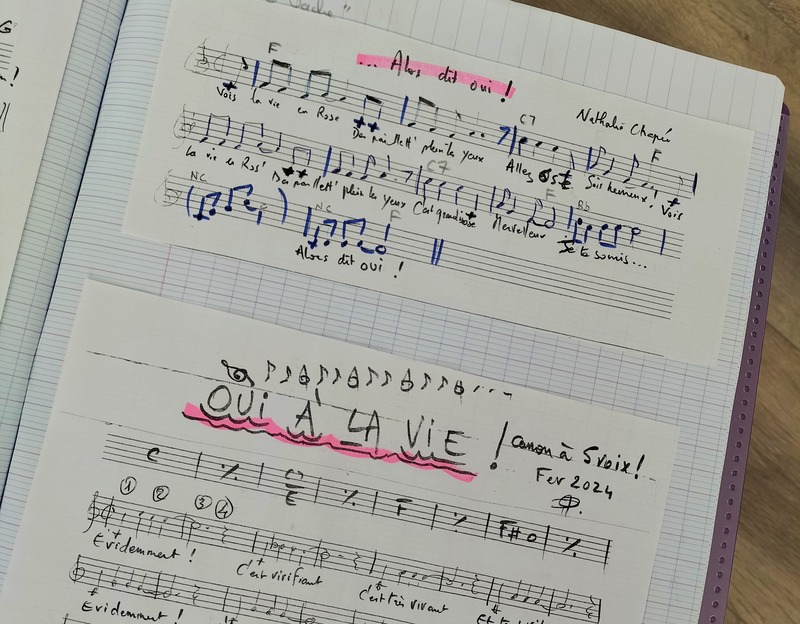 G
F
... Alors dit oui !
Nathalie
C7
F
Vois la vie en Rose
plein les yeux
Alles
Sois heureux ! Vois
C7
F
Bb
la vie en Ros'
plein les yeux
C'est grandiose
Merveilleux
Je te souris...
NC
NC
F
Alors dit oui !
OUI À LA VIE !
Canon à 5 voix !
Fev 2024
C
٪
C
E
٪
F
٪
F#o
٪
① ② ③ ④
Evidemment !
C'est vivifiant
C'est très vivant
Evidemment !